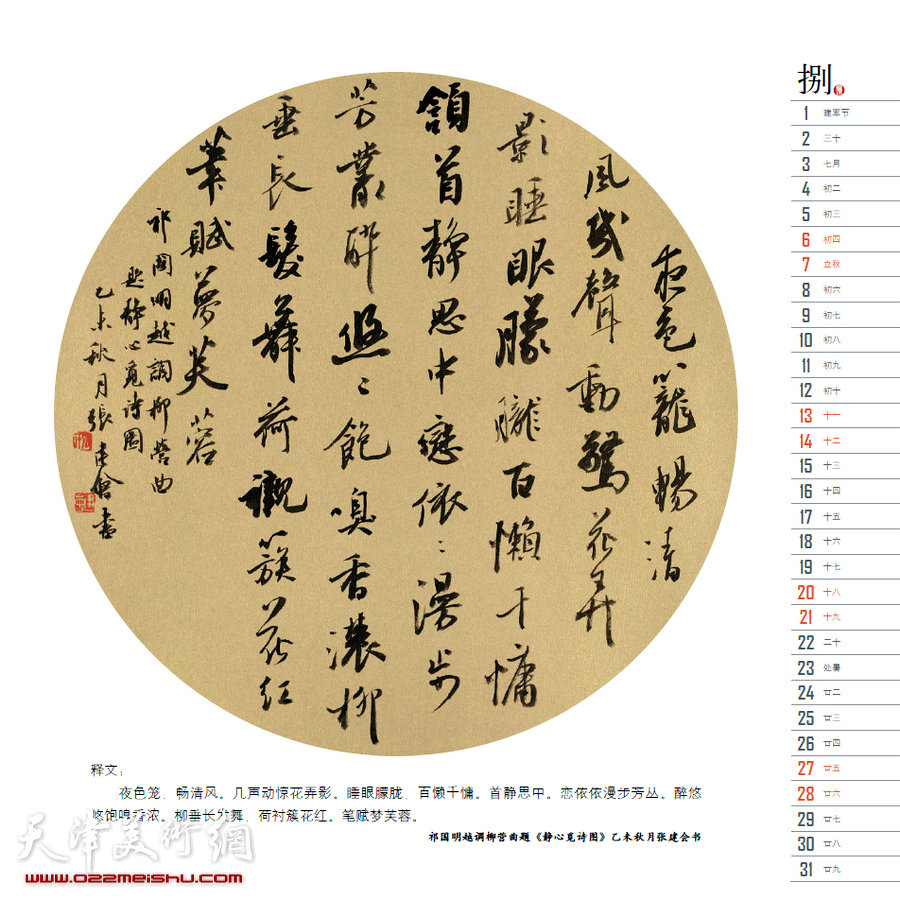 夜色籠暢清
風幾聲動驚花弄
影睡眼朦朧百懶千慵
頷首靜思中戀依〻漫步
芳叢醉悠〻飽嗅香濃柳
垂長髮舞荷襯簇花紅
筆賦夢芙蓉
祁國明越調柳營曲
題靜心覓詩圖
乙未秋月張建會書
释文：
夜色笼、畅清风。几声动惊花弄影。睡眼朦胧、百懒千慵。首静思中。恋依依漫步芳丛。醉悠
悠饱嗅香浓。柳垂长发舞、荷衬簇花红。笔赋梦芙蓉。
祁国明越调柳营曲题《静心觅诗图》乙未秋月张建会书
天津美術網
www.022meishu.com
捌
1 建军节
2 三十
3 七月
4 初二
5 初三
6 初四
7 立秋
8 初六
9 初七
10 初八
11 初九
12 初十
13 十一
14 十二
15 十三
16 十四
17 十五
18 十六
19 十七
20 十八
21 十九
22 二十
23 处暑
24 廿二
25 廿三
26 廿四
27 廿五
28 廿六
29 廿七
30 廿八
31 廿九